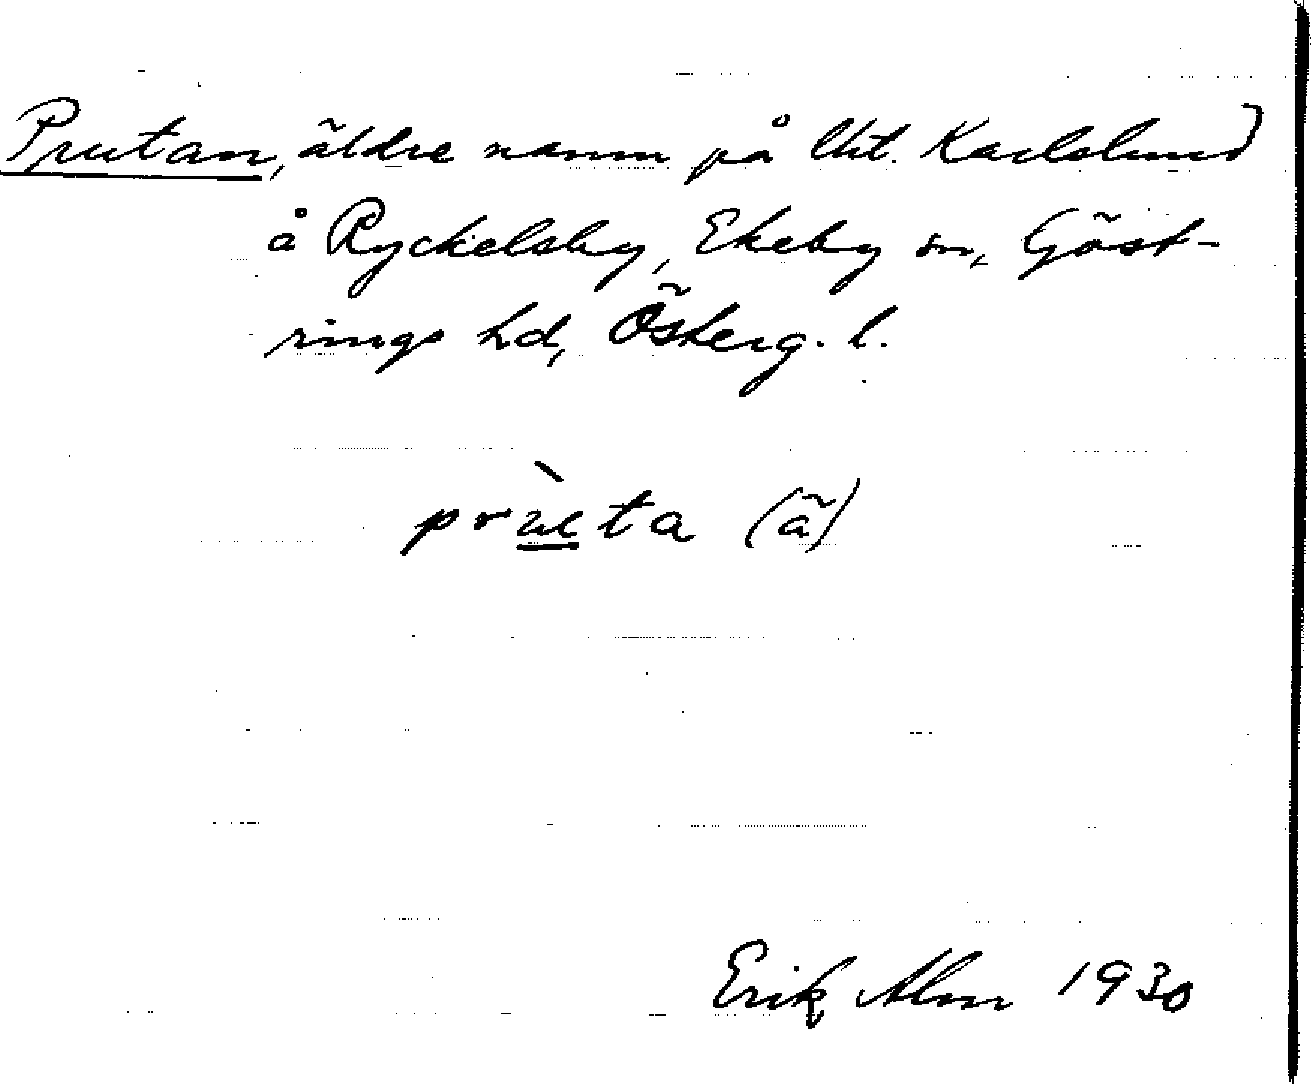 Prutan, äldre namn på lht. Karlslund
å Ryckelsby, Ekeby sn, Göst-
rings hd, Österg. l.
prùta (ã)
Erik Alm 1930